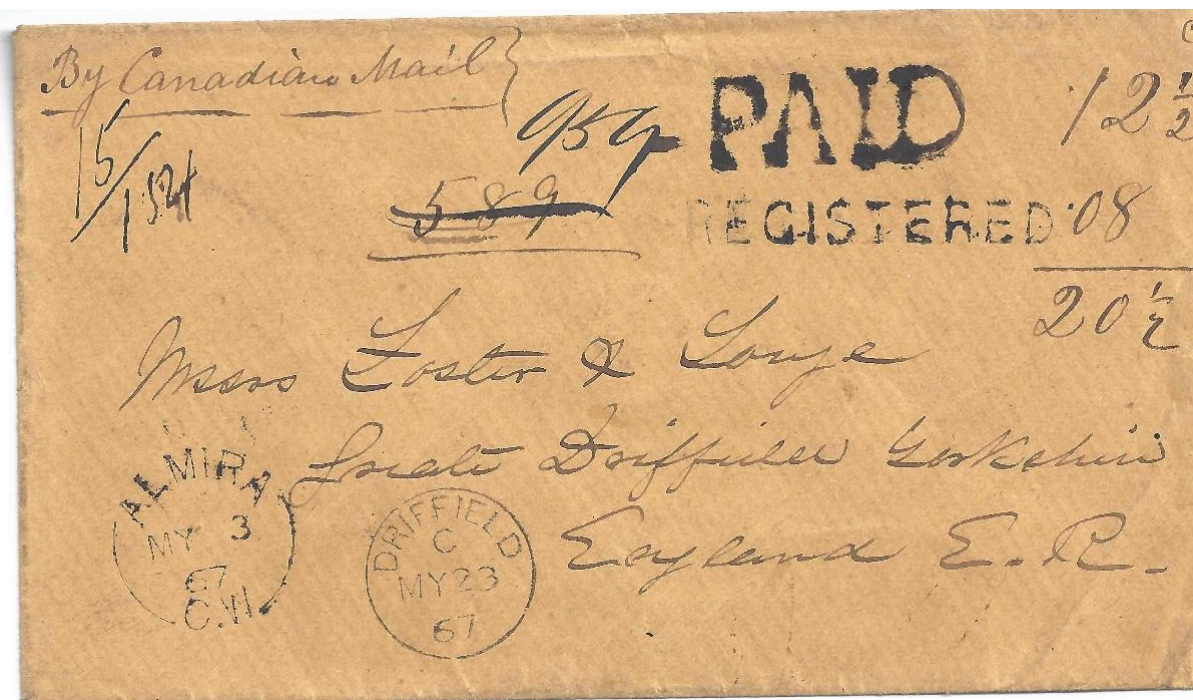 By Canadian Mail
15/1524
959
589
PAID
REGISTERED
12 ½
08
20 ½
Messrs Foster &
Great Driffield Yorkshire
England E. R.
ALMIRA
MY 3
67
C.W.
DRIFFIELD
C
MY 23
67